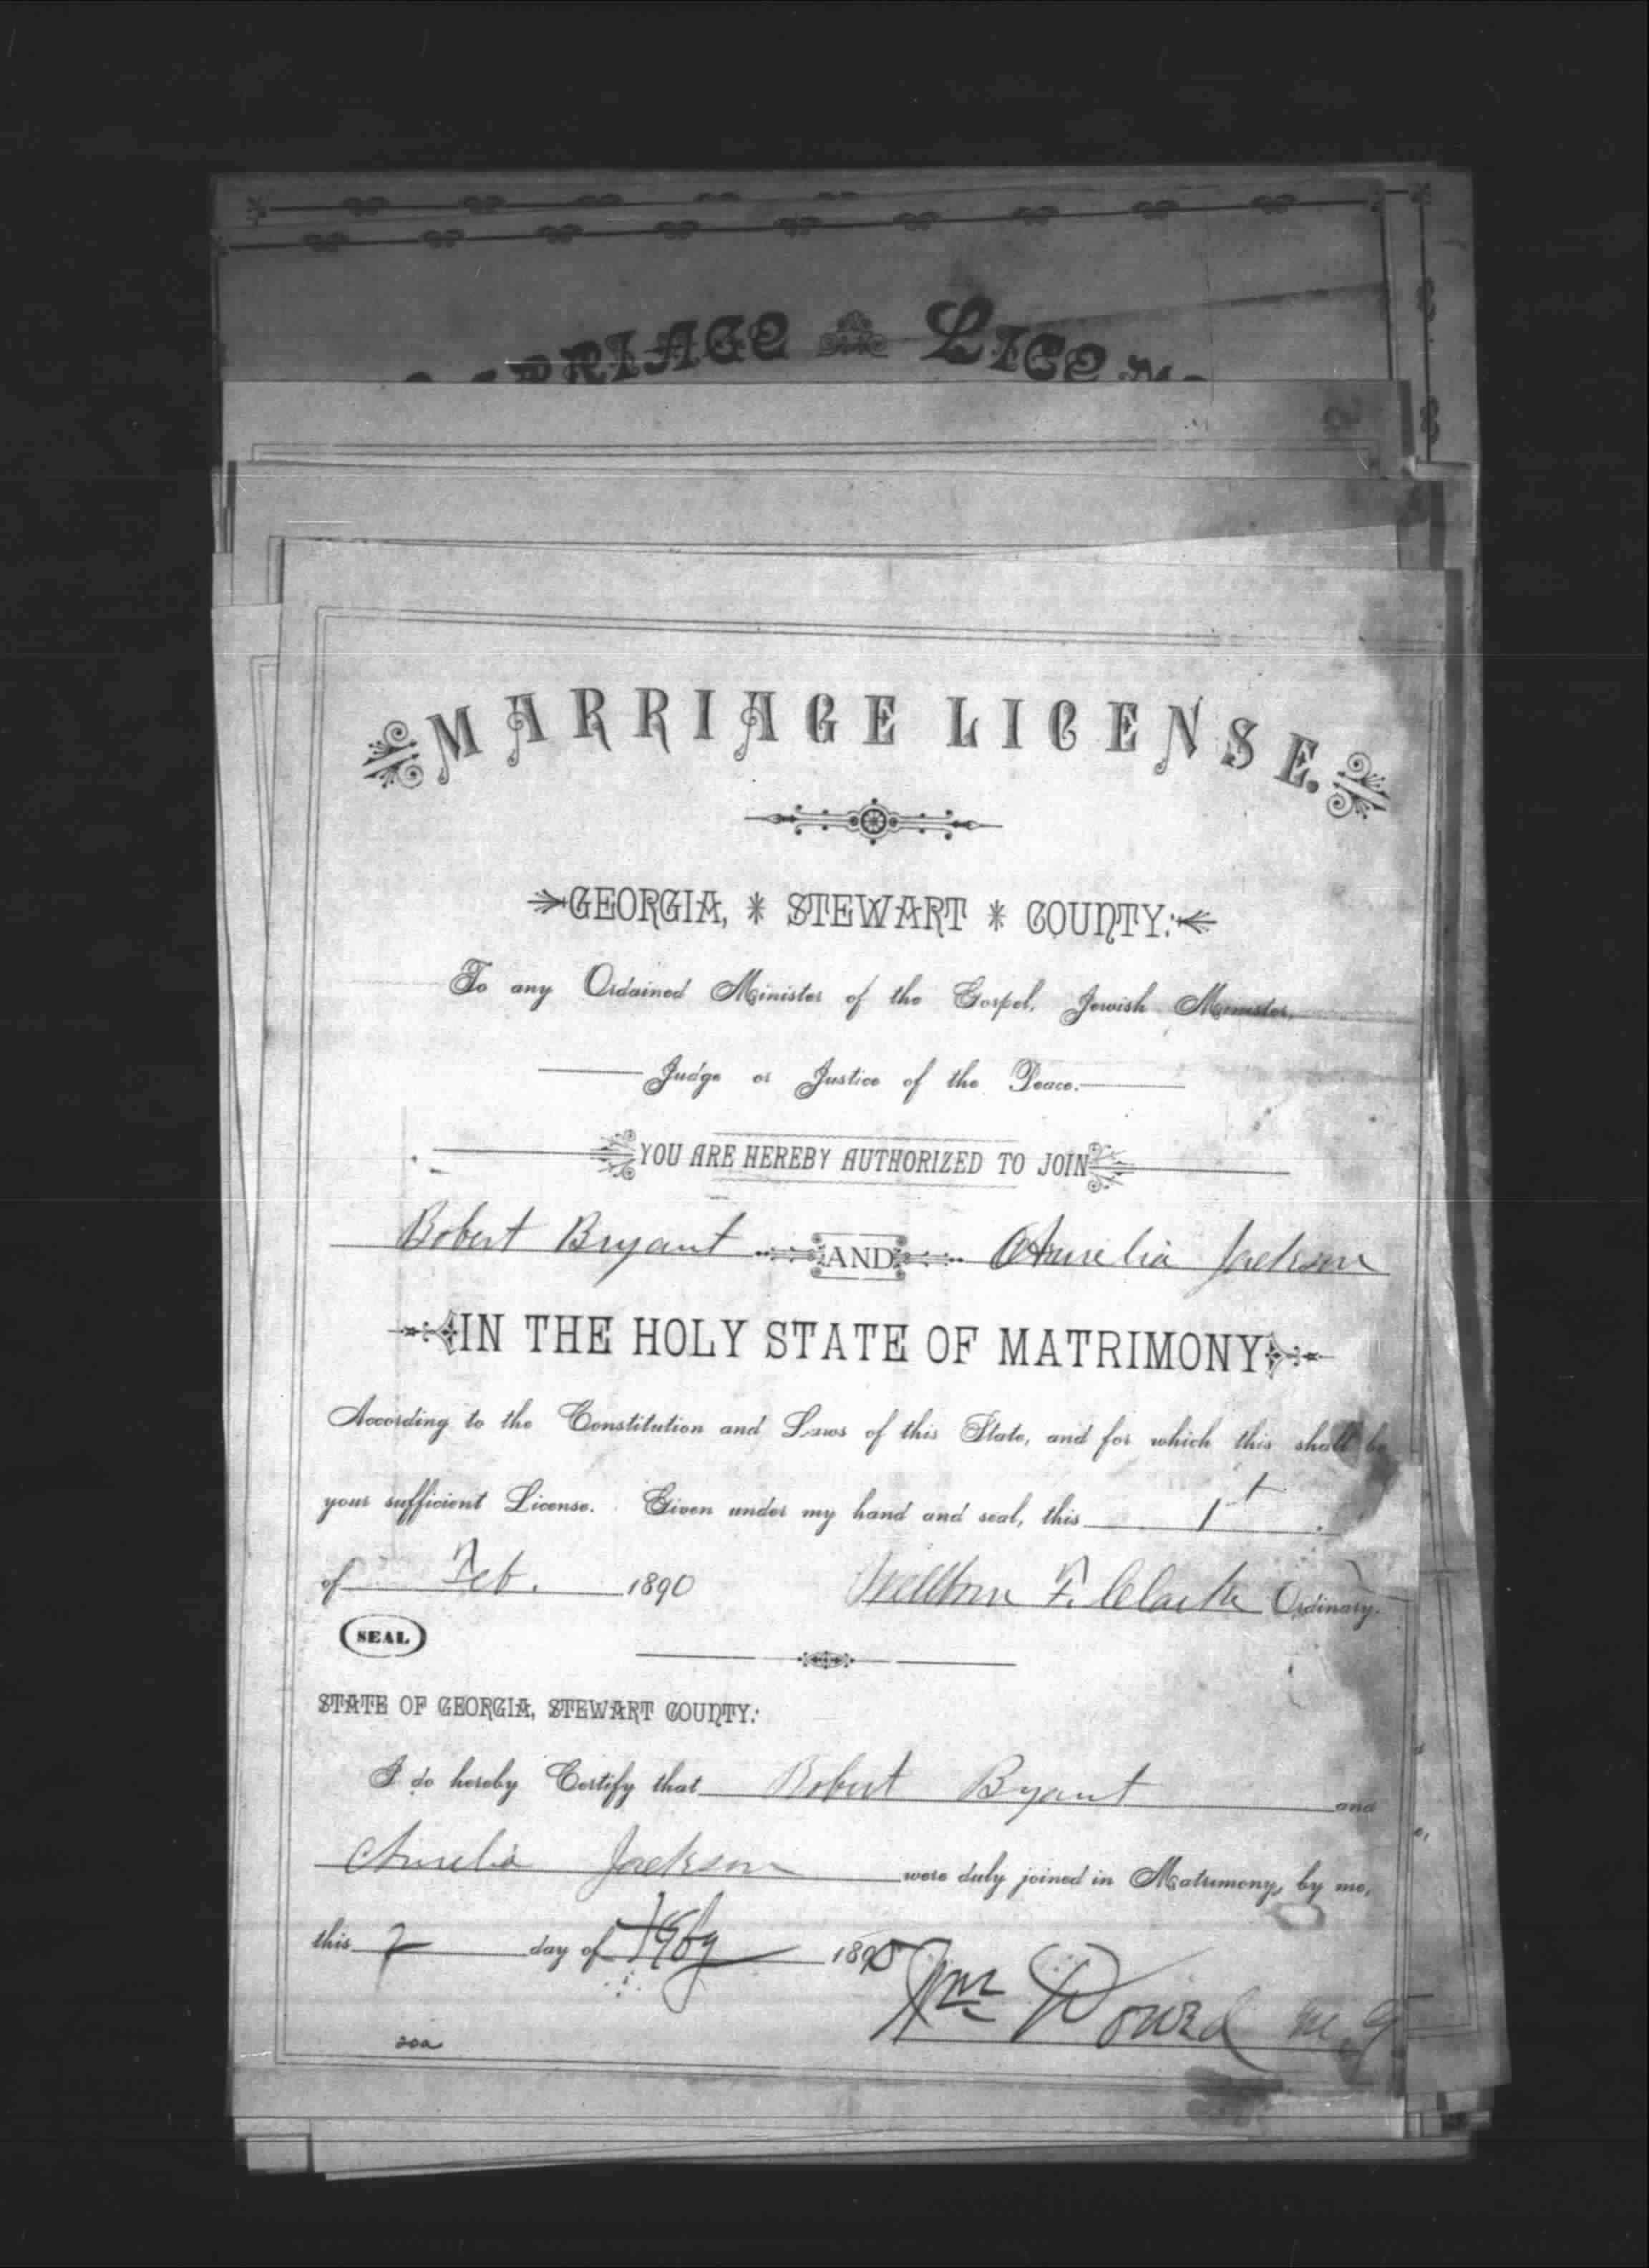 MARRIAGE LICEN
MARRIAGE LICENSE.
GEORGIA, * STEWART * COUNTY:
To any Ordained Minister of the Gospel, Jewish Minister,
Judge or Justice of the Peace.
YOU ARE HEREBY AUTHORIZED TO JOIN
Robert Bryant AND Aurelia Jackson
IN THE HOLY STATE OF MATRIMONY
According to the Constitution and Laws of this State, and for which this shall be
your sufficient License. Given under my hand and seal, this 1st
of Feb. 1890 F. Clarke Ordinary.
SEAL
STATE OF GEORGIA, STEWART COUNTY:
I do hereby Certify that Robert Byant and
Aurelia Jackson were duly joined in Matrimony, by me,
this 2 day of 1890
Wm
202